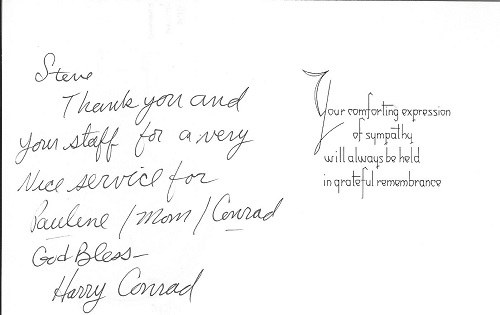 Steve
Thank you and
your staff for a very
Nice service for
Pauline / Mom / Conrad
God Bless—
Harry Conrad
Your comforting expression
of sympathy
will always be held
in grateful remembrance